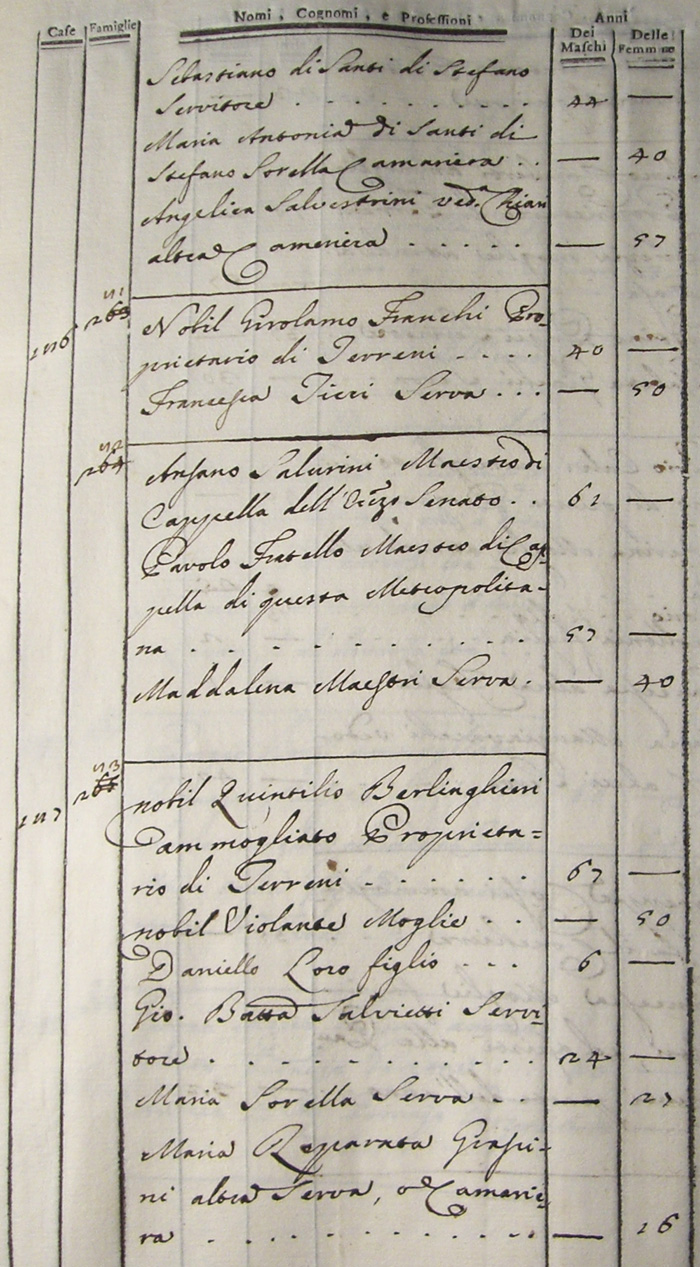 Nomi, Cognomi, e Professioni Anni
Case Famiglie Dei Maschi Delle Femmine
Sebastiano di Santi di Stefano
Servitore . . . . . . . . . . 44 —
Maria Antonia di Santi di
Stefano Sorella Camariera . . — 40
Angelica Salvestrini ved.a Chiari
altra Cameriera . . . . . — 57
Nobil Girolamo Franchi Pro-
prietario di Terreni . . . . 40 —
Francesca Ticci Serva . . . — 50
264
Ansano Salurini Maestro di
Cappella dell' Senato . . 61 —
Pavolo Fratello Maestro di Cap-
pella di questa Metropolita-
na . . . . . . . . . . 57 —
Maddalena Maestri Serva . — 40
nobil Quintilio Berlinghieri
ammogliato Proprieta=
rio di Terreni . . . . . . 67 —
nobil Violante Moglie . . — 50
Daniello Loro figlio . . . 6 —
Gio. Batta Salvietti Servi-
tore . . . . . . . . . . 24 —
Maria Sorella Serva . . — 27
Maria Reparata Graspi-
ni altra Serva, o Camarie-
ra . . . . . . . . . . — 26